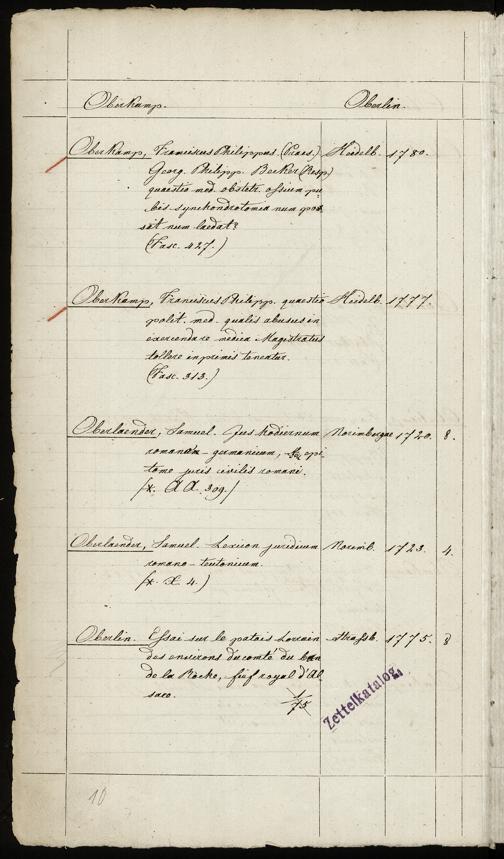 Oberkamp. Oberlin.
Oberkamp, Franciscus Philippus. (Praes.) Heidelb. 1780.
Georg. Philipp. Becker (Resp)
quaestio med. obstetr. ossium pu
bis synchondrotomia num pos
sit num laedat?
(Fasc. 427.)
Oberkamp, Franciscus Philipp. quaestio Heidelb. 1777.
polit. med. qualis abusus in
exercenda re medica Magistratus
tollere inprimis teneatur.
(Fasc. 313.)
Oberlaender, Samuel. Jus hodiernum Norimbergae 1720. 8.
romano-germanicum, epi
tome juris civilis romani.
(x. A A. 309.)
Oberlaender, Samuel. Lexicon juridicum Norimb. 1723. 4.
romano-teutonicum.
(x. X. 4.)
Oberlin. Essai sur le patois Lorrain Strassb. 1775. 8
des environs du comté du ban
de la Roche, fief royal d'Al
sace.
75
Zettelkatalog.
10